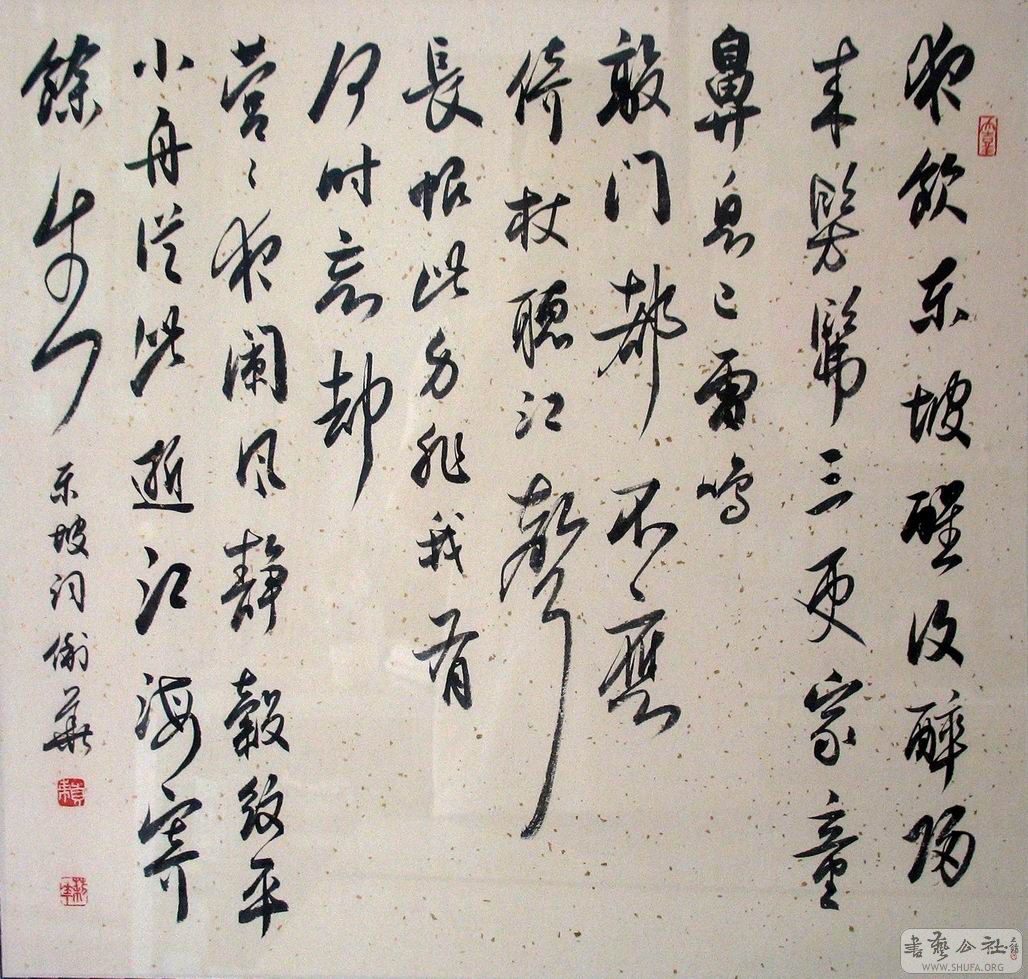 夜飲东坡醒復醉歸
来髣髴三更家童
鼻息已雷鳴
敲门都不應
倚杖聽江聲
長恨此身非我有
何时忘却
营々夜阑风静縠纹平
小舟從此逝江海寄
餘生
东坡词俐華
書藝公社
WWW.SHUFA.ORG